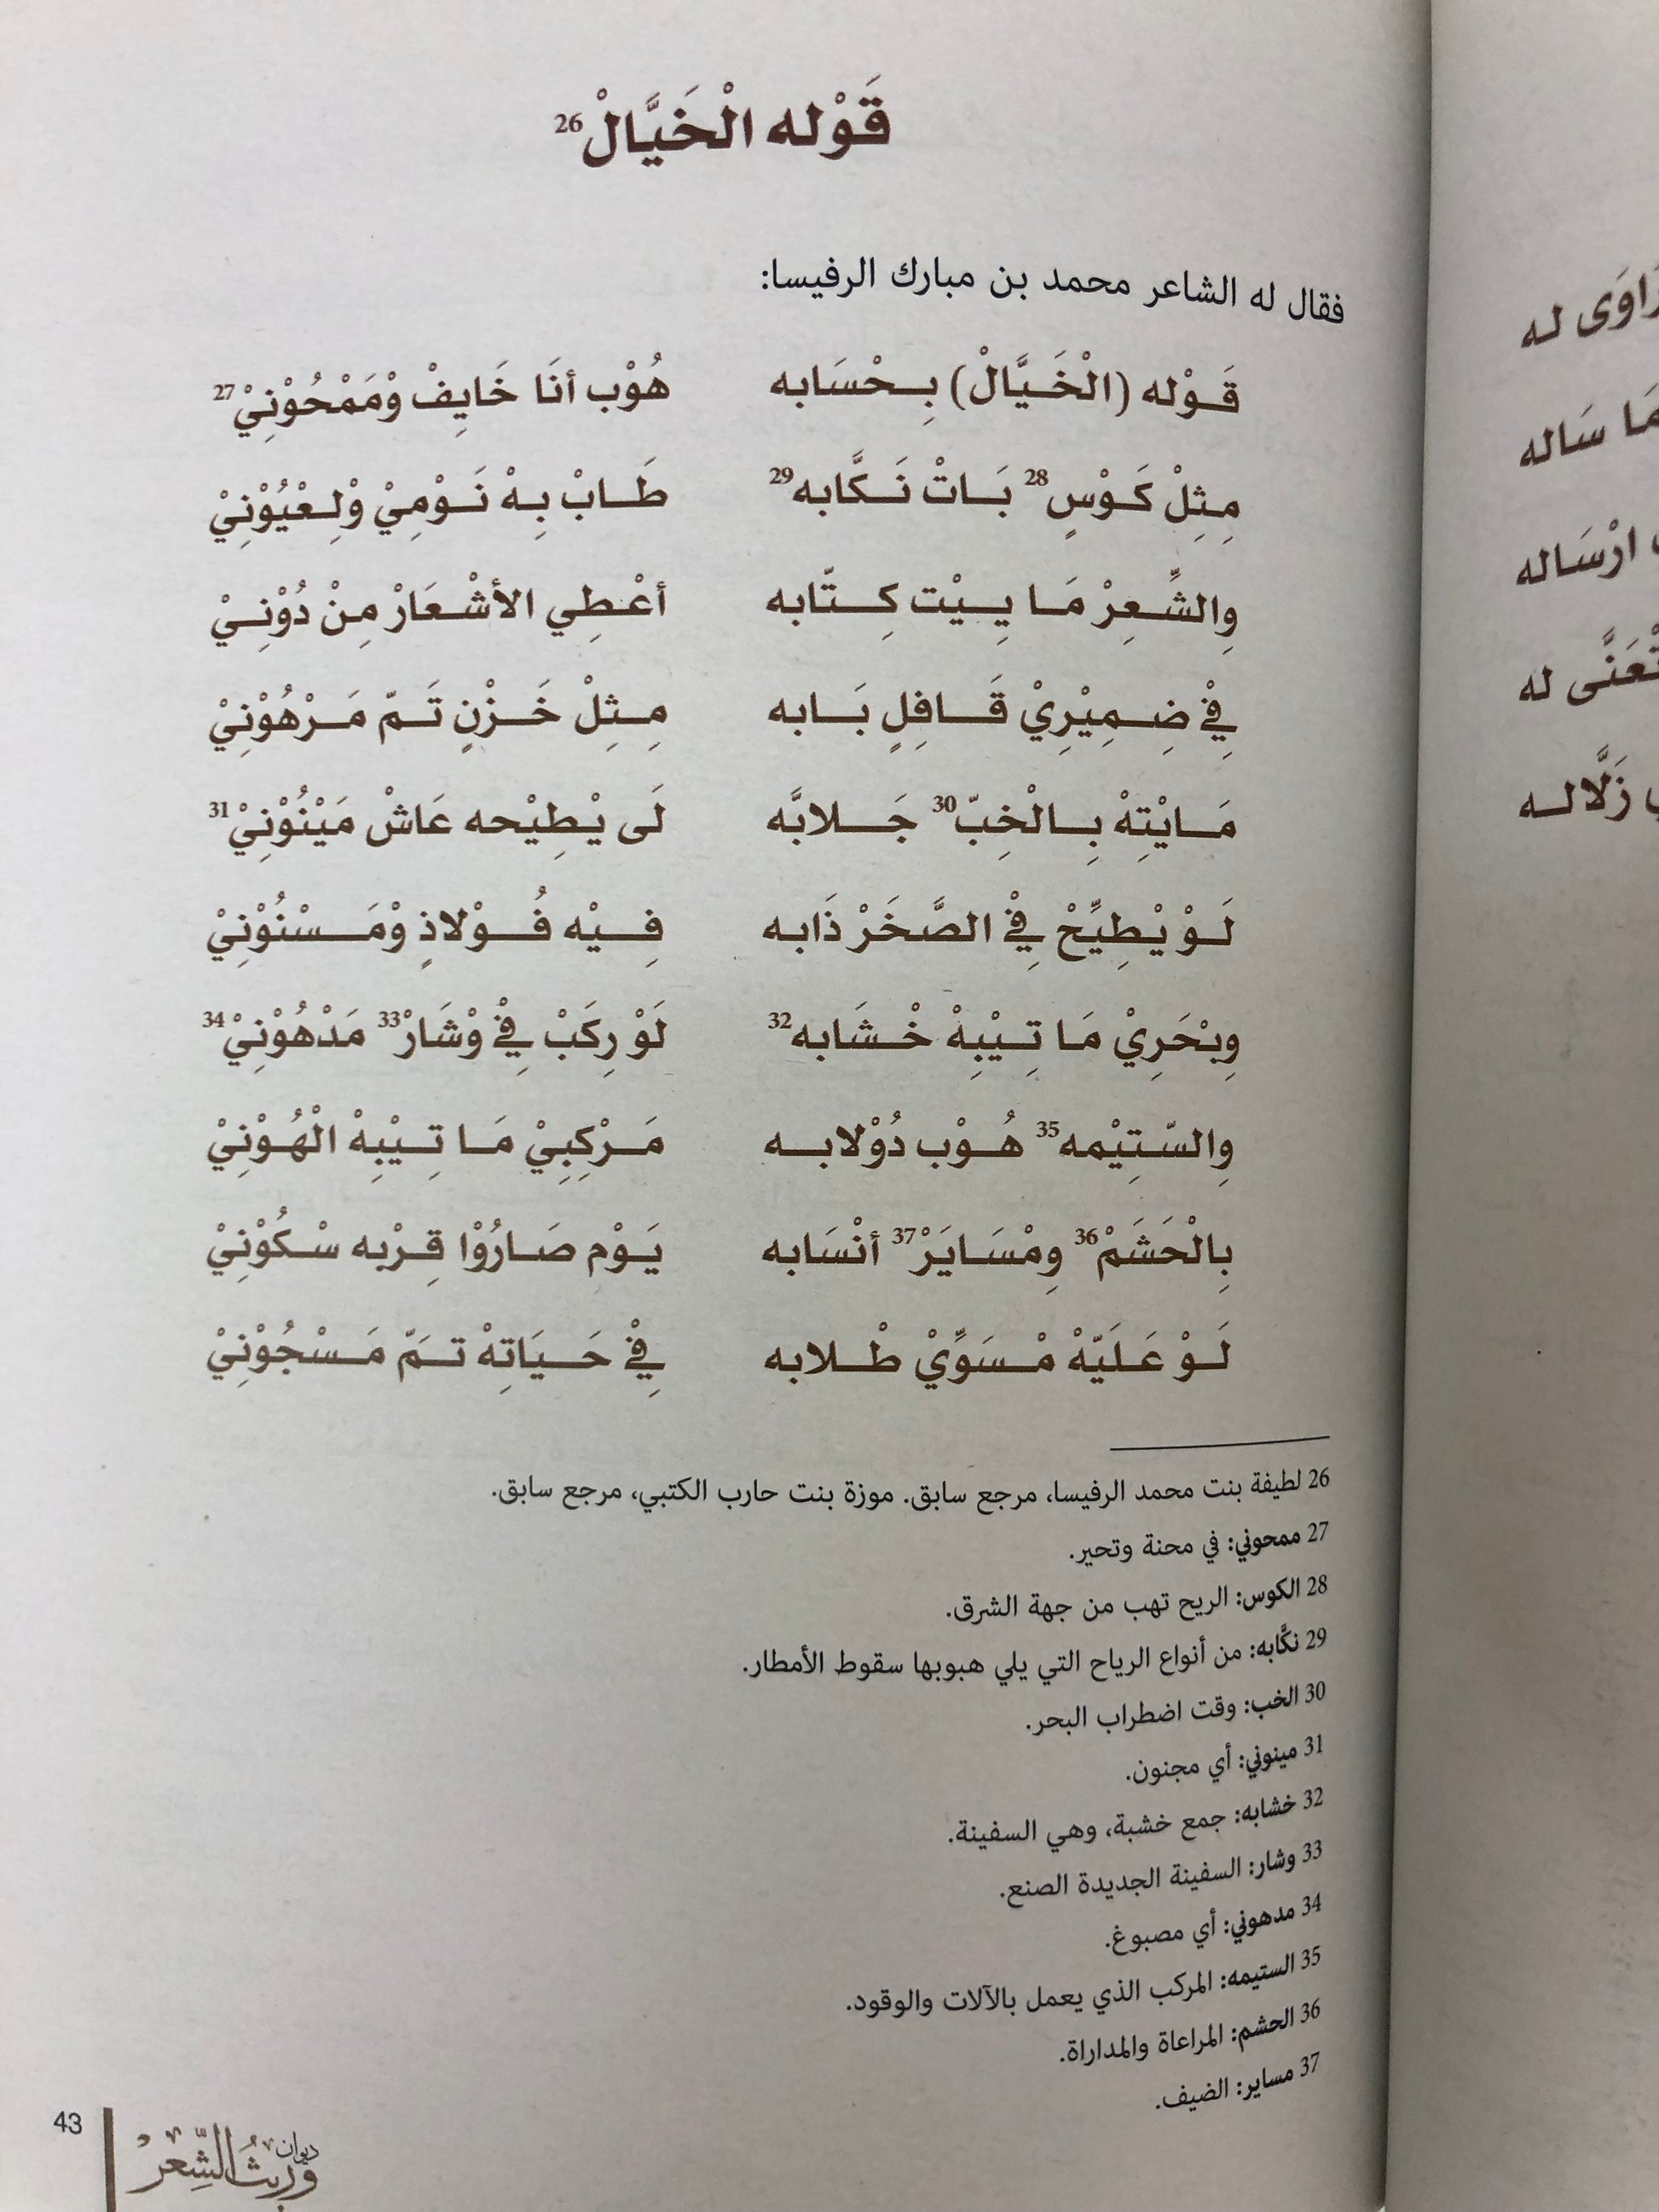 قَوْله الْخَيَّالْ 26
فقال له الشاعر محمد بن مبارك الرفيسا:
قَوْله (الْخَيَّالْ) بِحْسَابه هُوْب أنَا خَايِفْ وْمَمْحُوْنِيْ 27
مِثِلْ كَوْسٍ 28 بَاتْ نَكَّابه 29 طَابْ بِهْ نَوْمِيْ وْلِعْيُوْنِيْ
وِالشِّعِرْ مَا يِيْت كِتّابه أعْطِي الأشْعَارْ مِنْ دُوْنِيْ
فِيْ ضِمِيْرِيْ قَافِلٍ بَابه مِثِلْ خَزْنٍ تَمّ مَرْهُوْنِيْ
مَايْتِهْ بِالْخِبّ 30 جَلابَّه لَى يْطِيْحه عَاشْ مَيْنُوْنِيْ 31
لَوْ يْطِيِّحْ فِيْ الصَّخَرْ ذَابه فِيْه فُوْلاذٍ وْمَسْنُوْنِيْ
وِبْحَرِيْ مَا تِيْبِهْ خْشَابه 32 لَوْ رِكَبْ فِيْ وْشَارْ 33 مَدْهُوْنِيْ 34
وِالسّتِيْمه 35 هُوْب دُوْلابه مَرْكِبِيْ مَا تِيْبِهْ الْهُوْنِيْ
بِالْحَشَمْ 36 وِمْسَايَرْ 37 أنْسَابه يَوْم صَارُوْا قِرْبه سْكُوْنِيْ
لَوْ عَلَيّهْ مْسَوِّيْ طْلابه فِيْ حَيَاتِهْ تمّ مَسْجُوْنِيْ
26 لطيفة بنت محمد الرفيسا، مرجع سابق. موزة بنت حارب الكتبي، مرجع سابق.
27 ممحوني: في محنة وتحير.
28 الكوس: الريح تهب من جهة الشرق.
29 نكَّابه: من أنواع الرياح التي يلي هبوبها سقوط الأمطار.
30 الخب: وقت اضطراب البحر.
31 مينوني: أي مجنون.
32 خشابه: جمع خشبة، وهي السفينة.
33 وشار: السفينة الجديدة الصنع.
34 مدهوني: أي مصبوغ.
35 الستيمه: المركب الذي يعمل بالآلات والوقود.
36 الحشم: المراعاة والمداراة.
37 مساير: الضيف.
43
ديوان
وريث الشِّعر
زَاوَى له
مَا سَاله
ارْسَاله
تْعَنَّى له
زَلَّاله